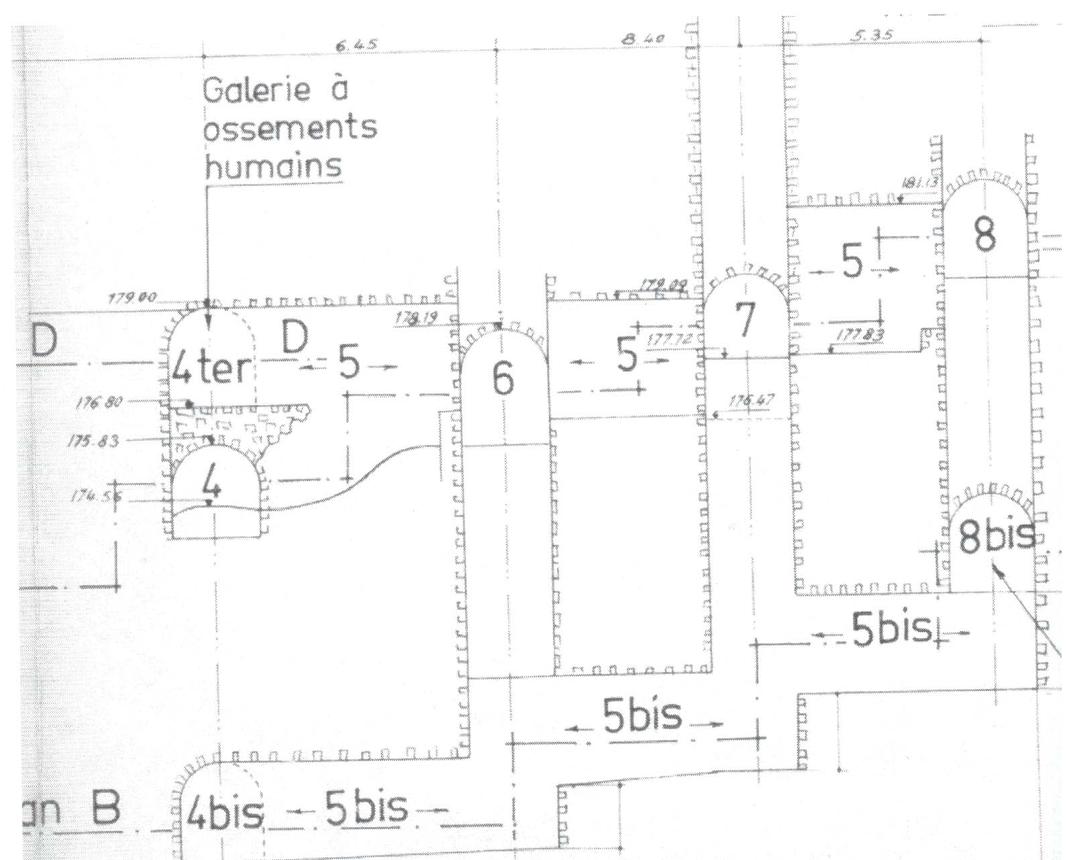 6.45
8.40
5.35
Galerie à
ossements
humains
181.13
8
5
179.00
179.09
178.19
7
177.72
177.83
D
D
4 ter
5
6
5
176.80
176.47
175.83
4
174.56
8bis
5bis
5bis
an B
4bis
5bis